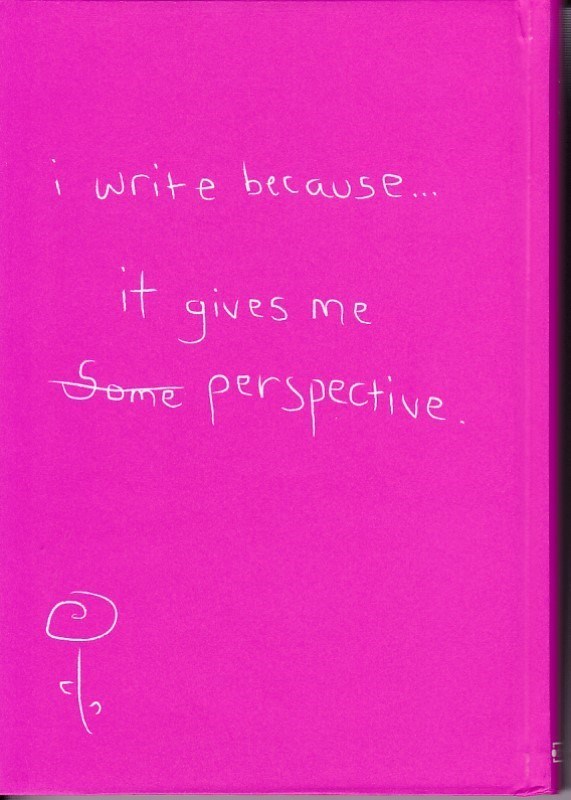 i write because...
it gives me
~~Some~~ perspective.